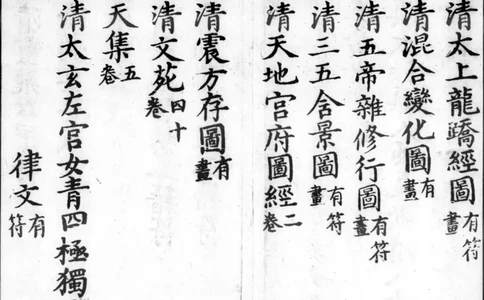 清太上龍蹻經圖有符畫
清混合變化圖有畫
清五帝雜修行圖有符畫
清三五含景圖有符畫
清天地宮府圖經二卷
清震方存圖有畫
清文苑四十卷
天集五卷
清太玄左宮女青四極獨
律文有符